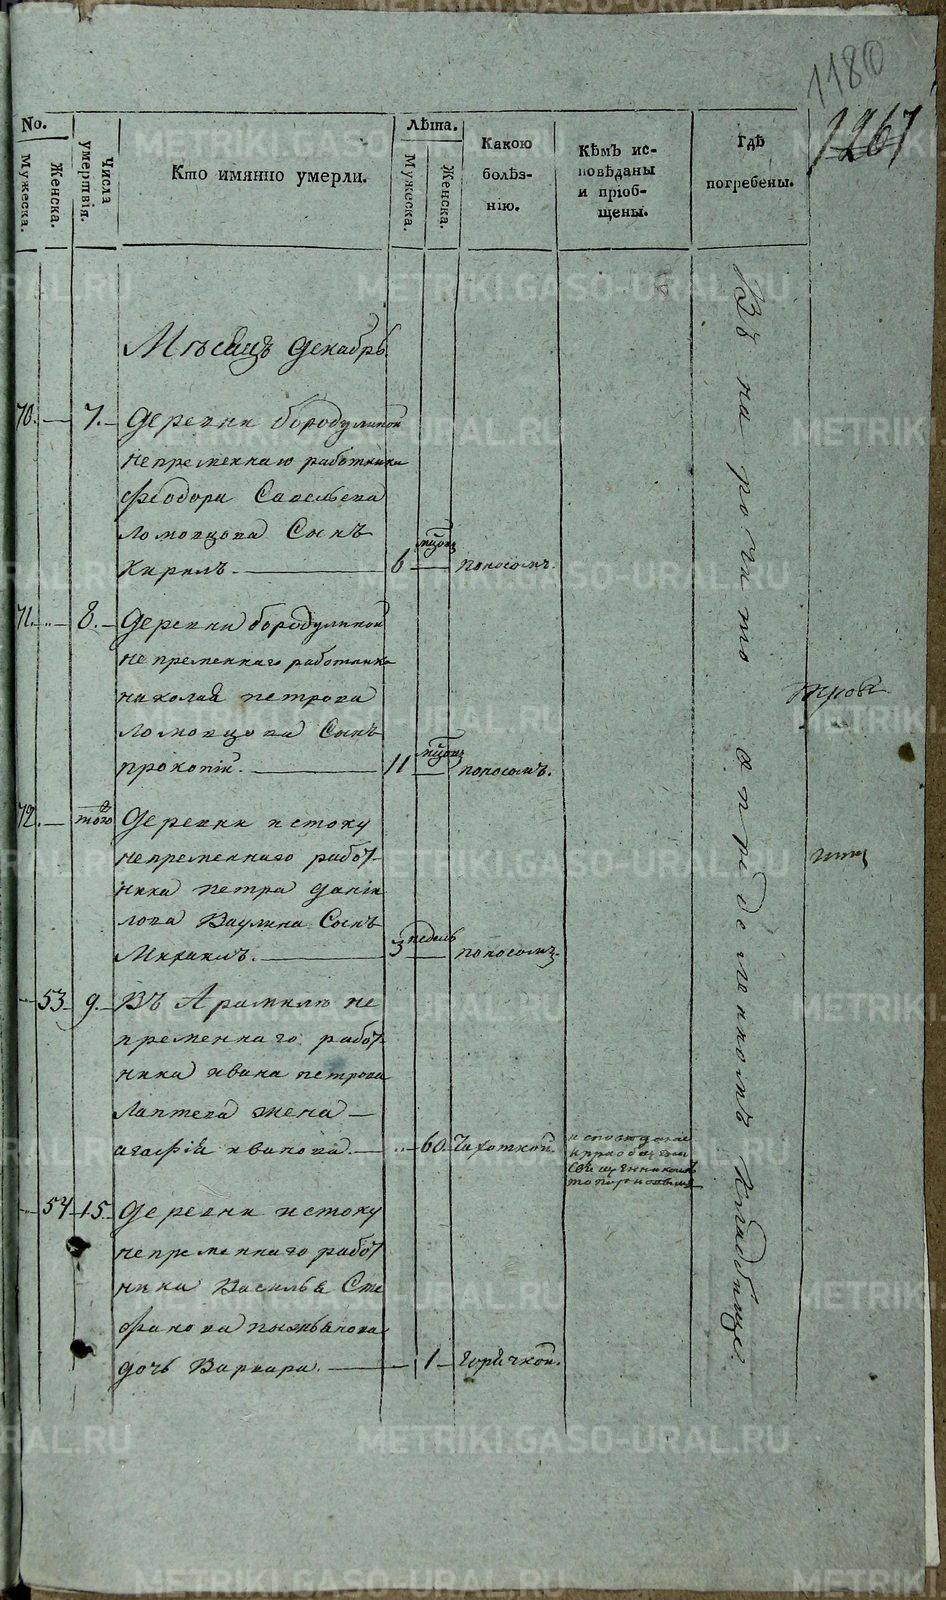 1180
1267
No.
Мужеска.
Женска.
Числа умертвія.
Кто имянно умерли.
Лѣта.
Мужеска.
Женска.
Какою
болѣз-
нію.
Кѣмъ ис-
повѣданы
и пріоб-
щены.
Гдѣ
погребены.
Мѣсяцъ декабрь
70. — 7. — деревни бородулиной
непременнаго работника
феодора Савельева
ломовцова Сынъ
Кирилъ. — 6 — поносомъ.
71. — 8. — деревни бородулиной
непременнаго работника
николая петрова
ломовцова Сынъ
прокопій. — 11 — поносомъ.
72. — того деревни истоку
непременнаго работ
ника петра даніи
лова Ваулина Сынъ
Михаилъ. — 3 недель поносомъ.
— 53 9. — Въ Арамилѣ не
пременнаго работ
ника ивана петрова
лаптева жена —
агафія иванова. — 60. Чахоткой.
исповедана
и приобщена
Священникомъ
— 54 15. деревни истоку
непременнаго работ
ника Василья Сте
фанова
дочь Варвара. — 1 — горячкой.
Въ на
кладбище.
METRIKI.GASO-URAL.RU